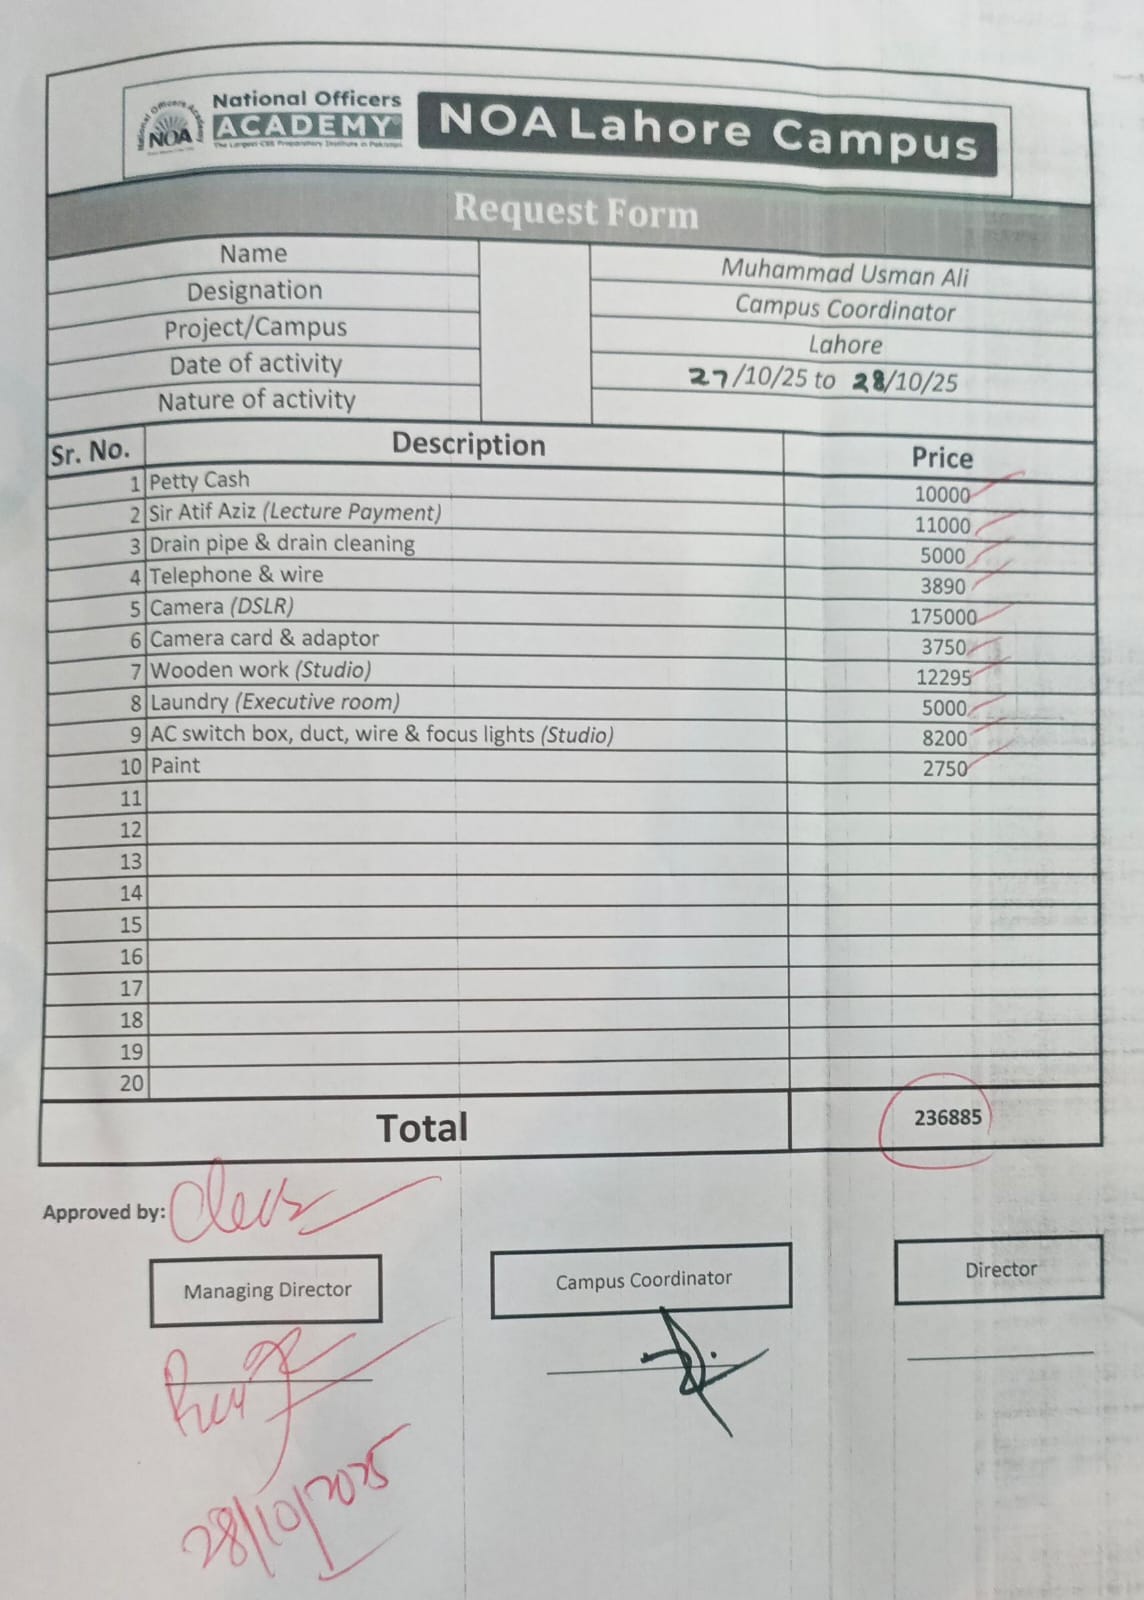 National Officers Academy
NOA
National Officers
ACADEMY
The Largest CSS Preparatory Institute in Pakistan
NOA Lahore Campus
Request Form
Name Muhammad Usman Ali
Designation Campus Coordinator
Project/Campus Lahore
Date of activity 27/10/25 to 28/10/25
Nature of activity
Sr. No. Description Price
1 Petty Cash 10000
2 Sir Atif Aziz (Lecture Payment) 11000
3 Drain pipe & drain cleaning 5000
4 Telephone & wire 3890
5 Camera (DSLR) 175000
6 Camera card & adaptor 3750
7 Wooden work (Studio) 12295
8 Laundry (Executive room) 5000
9 AC switch box, duct, wire & focus lights (Studio) 8200
10 Paint 2750
11
12
13
14
15
16
17
18
19
20
Total 236885
Approved by:
Managing Director Campus Coordinator Director
28/10/2025